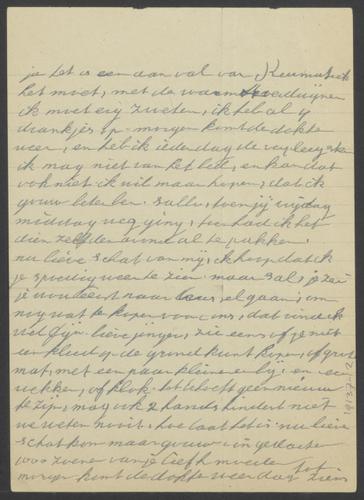 ja het is een aan val van Reumatiek
het moet, met de warmte verdwijnen
ik moet erg zweeten, ik heb al 9
drankjes op. morgen komt de dokter
weer, en heb ik iederdag de verpleegster
ik mag niet van het bed, en kan dat
ook niet ik wil maar hopen, dat ik
gauw beter ben. Sallie, toen jij vrijdag
middag weg ging, toen had ik het
dien zelfden avond al te pakken.
nu lieve schat van mij, ik hoop dat ik
je spoedig weer te zien. maar Sal, je zei
je wou eerst naar gaan, om
nog wat te kopen voor ons, dat vind ik
wel fijn. lieve jongen, zie eens of je niet
een kleed op de grond kunt kopen, of
mat, met een paar kleinen er bij en een
wekker, of klok. het behoeft geen nieuw
te zijn, mag ook 2 hands hindert niet
we weten nooit, hoe laat het is. nu lieve
schat kom maar gauw. in gedachte
voor zoenen van je liefh moeder tot
morgen komt de dokter weer dag ziens
19137-2